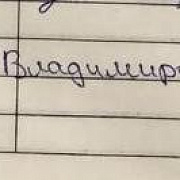 Владимир